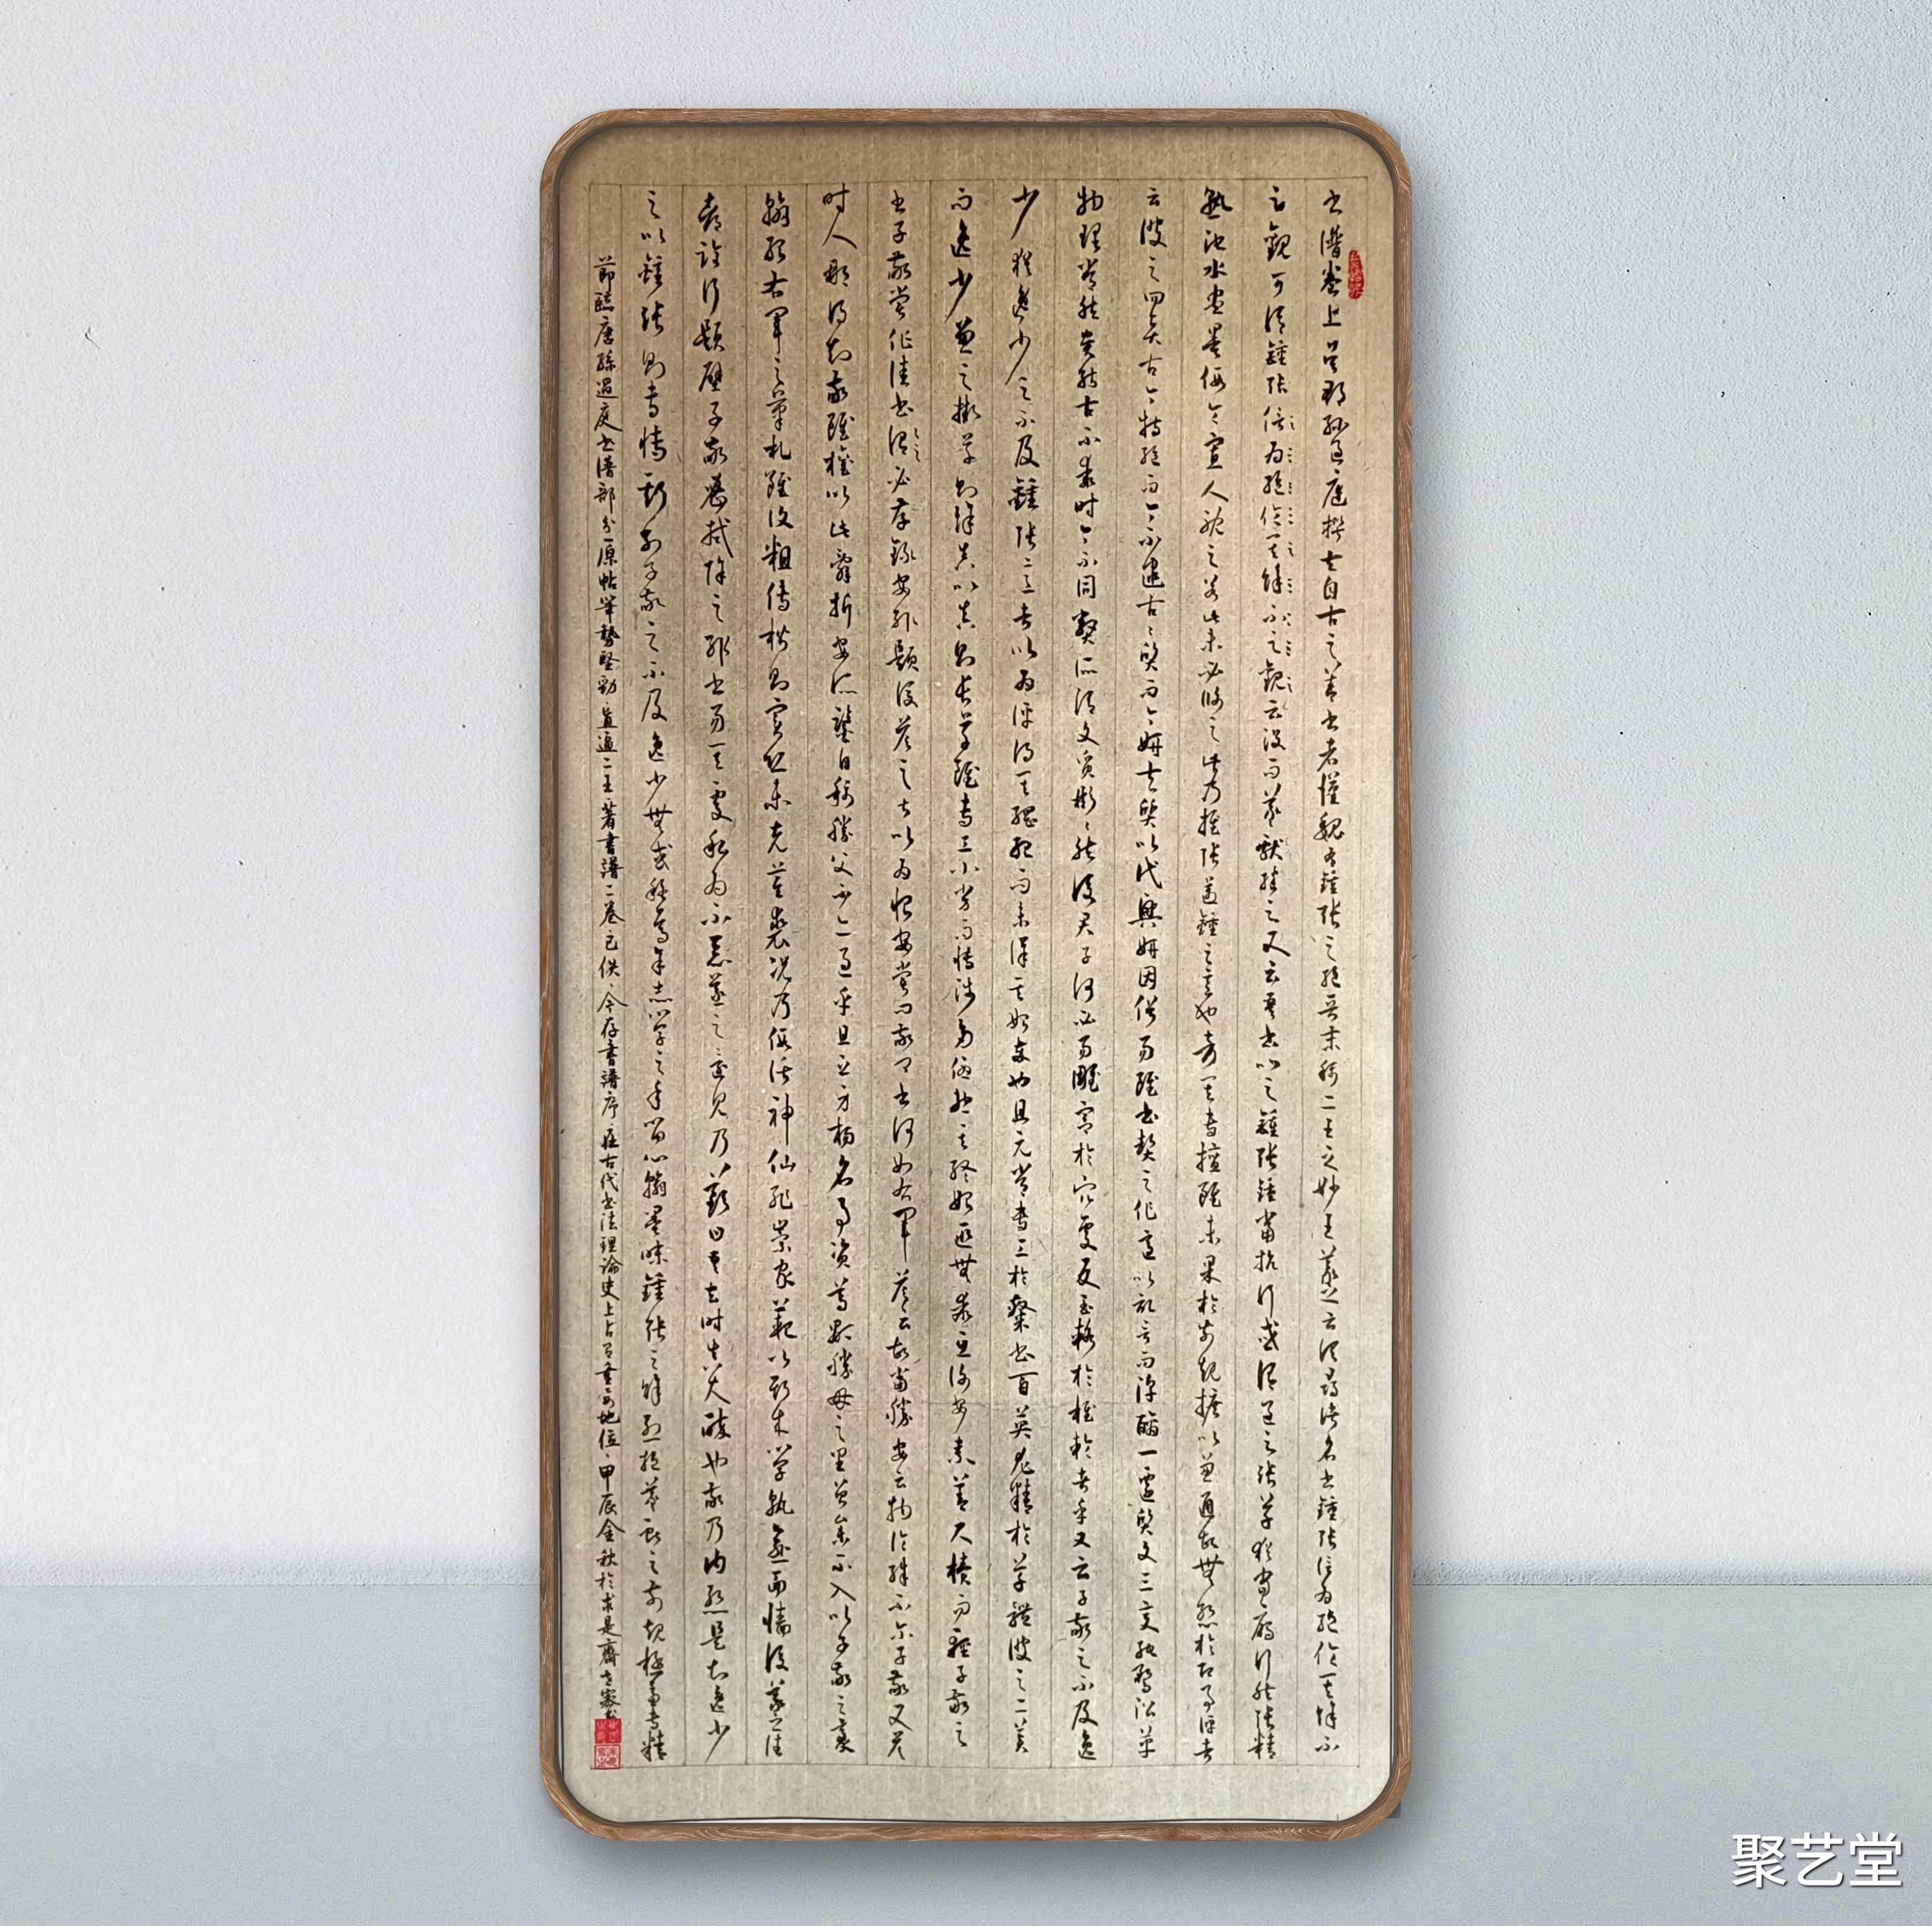 书譜卷上吴郡孫過庭撰夫自古之善書者漢魏有鍾張之絕晉末稱二王之妙王羲之云頃尋諸名書鍾張信為絕倫其餘不
足觀可謂鍾張信為絕倫其餘不足觀云没而羲獻繼之又云吾書比之鍾張鍾當抗行或謂過之張草猶當雁行然張精
熟池水盡墨假令寡人耽之若此未必謝之此乃推張邁鍾之意也考其專擅雖未果於前規摭以兼通故無慚於即事評者
云彼之四賢古今特絕而今不逮古古質而今妍夫質以代興妍因俗易雖書契之作適以記言而淳醨一遷質文三變馳騖沿革
物理常然貴能古不乖時今不同弊所謂文質彬彬然後君子何必易雕宮於穴處反玉輅於椎輪者乎又云子敬之不及逸
少猶逸少之不及鍾張意者以為評得其綱紀而未詳其始卒也且元常專工於隸書百英尤精於草體彼之二美
而逸少兼之擬草則餘真比真則長草雖專工小劣而博涉多優總其終始匪無乖互謝安素善尺牘而輕子敬之
書子敬嘗作佳書與之謂必存錄安輒題後答之甚以為恨安嘗問敬卿書何如右軍答云故當勝安云物論殊不爾子敬又答
時人那得知敬雖權以此辭折安所鑒自稱勝父不亦過乎且立身揚名事資尊顯勝母之里曾參不入以子敬之豪
翰紹右軍之筆札雖復粗傳楷則實恐未克箕裘況乃假託神仙恥崇家範以斯成學孰愈面牆後羲之往
都臨行題壁子敬密拭除之輒書易其處私為不惡羲之還見乃歎曰吾去時真大醉也敬乃內慚是知逸少
之比鍾張則專博斯別子敬之不及逸少無或疑焉余志學之年留心翰墨味鍾張之餘烈挹羲獻之前規極慮專精
節臨唐孫過庭书譜部分原帖筆勢堅勁直逼二王著書譜二卷已佚今存書譜序在古代书法理論史上占有重要地位甲辰金秋於求是齋
聚艺堂